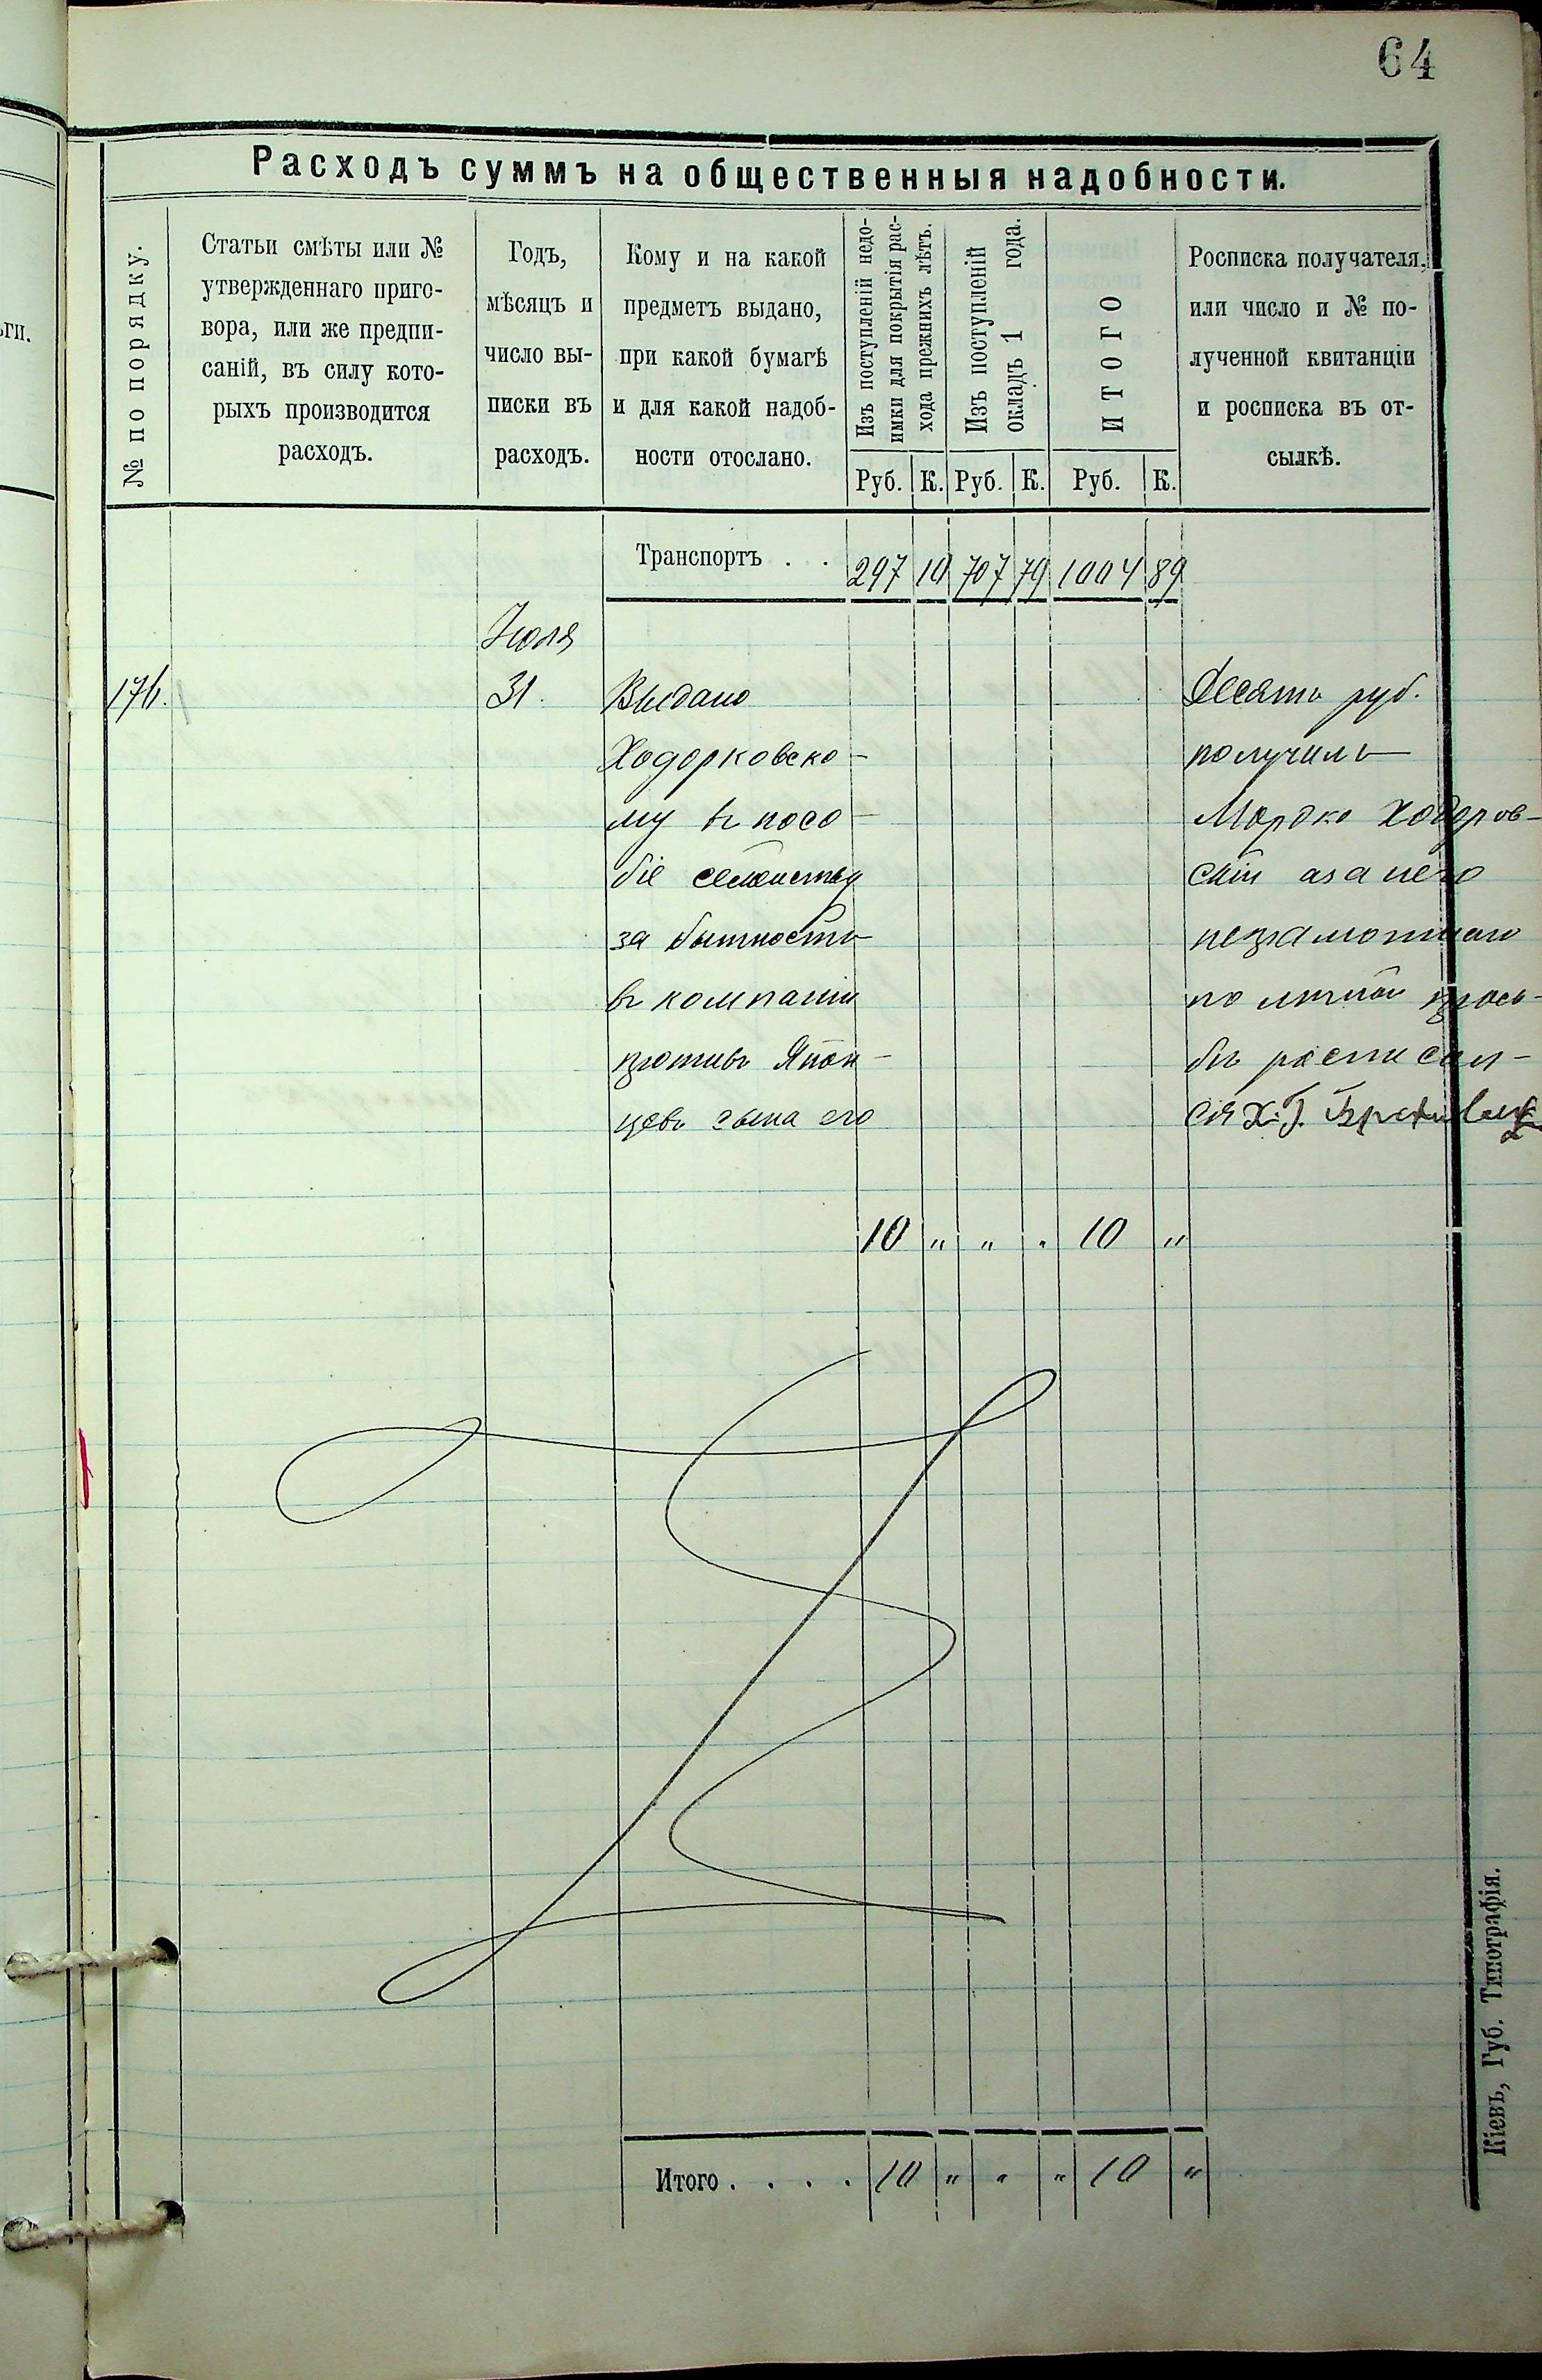 64
Расходъ суммъ на общественныя надобности.
№ по порядку.
Статьи смѣты или №
утвержденнаго приго-
вора, или же предпи-
саній, въ силу кото-
рыхъ производится
расходъ.
Годъ,
мѣсяцъ и
число вы-
писки въ
расходъ.
Кому и на какой
предметъ выдано,
при какой бумагѣ
и для какой надоб-
ности отослано.
Изъ поступленій недо-
имки для покрытія рас-
хода прежнихъ лѣтъ.
Изъ поступленій
окладъ 1 года.
ИТОГО
Росписка получателя,
или число и № по-
лученной квитанціи
и росписка въ от-
сылкѣ.
Руб. К. Руб. К. Руб. К.
Транспортъ . . 297 10 707 79 1004 89
Іюля
31. Выдано
Ходорковско-
му въ посо-
біе семейству
за бытность
въ компаніи
противъ Япон-
цевъ сына его
Десять руб.
получилъ
Мордко Ходоров-
скій а за него
неграмотнаго
по личной прось-
бѣ росписал-
ся Х. Г.
10 " " " 10 "
Итого . . . . 10 " " " 10 "
Кіевъ, Губ. Типографія.
ьги.